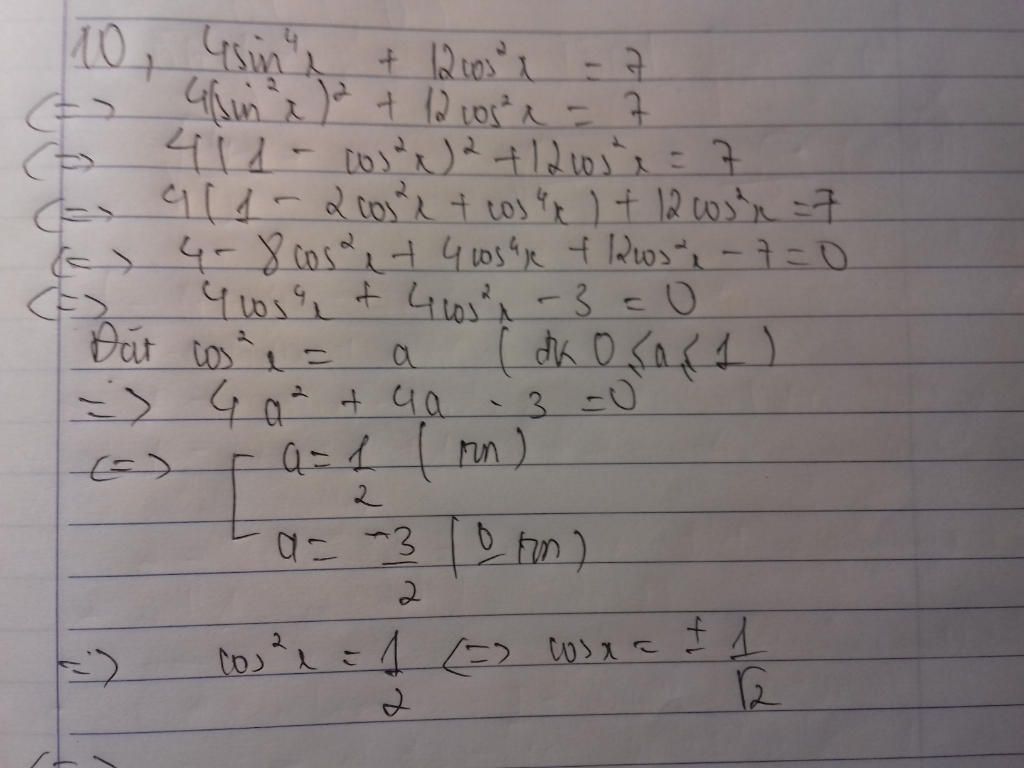 10, 4sin⁴x + 12cos²x = 7
<=> 4(sin²x)² + 12cos²x = 7
<=> 4(1 - cos²x)² + 12cos²x = 7
<=> 4(1 - 2cos²x + cos⁴x) + 12cos²x = 7
<=> 4 - 8cos²x + 4cos⁴x + 12cos²x - 7 = 0
<=> 4cos⁴x + 4cos²x - 3 = 0
Đặt cos²x = a (đk 0 ≤ a ≤ 1)
=> 4a² + 4a - 3 = 0
<=> [ a = 1/2 (tm)
a = -3/2 (0 tm)
=> cos²x = 1/2 <=> cosx = ± 1/√2
<=>